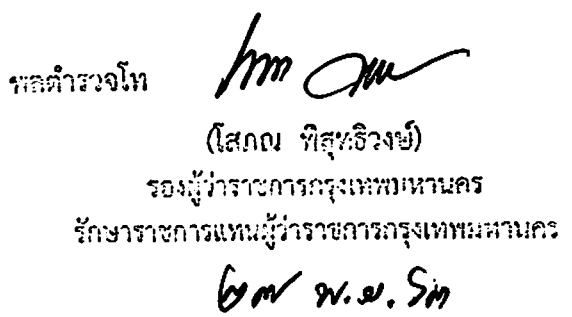 พลตำรวจโท
(โสภณ พิสุทธิวงษ์)
รองผู้ว่าราชการกรุงเทพมหานคร
รักษาราชการแทนผู้ว่าราชการกรุงเทพมหานคร
พ.ย.